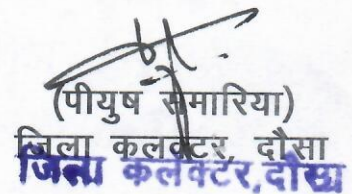 (पीयुष समारिया)
जिला कलक्टर, दौसा
जिला कलेक्टर, दौसा